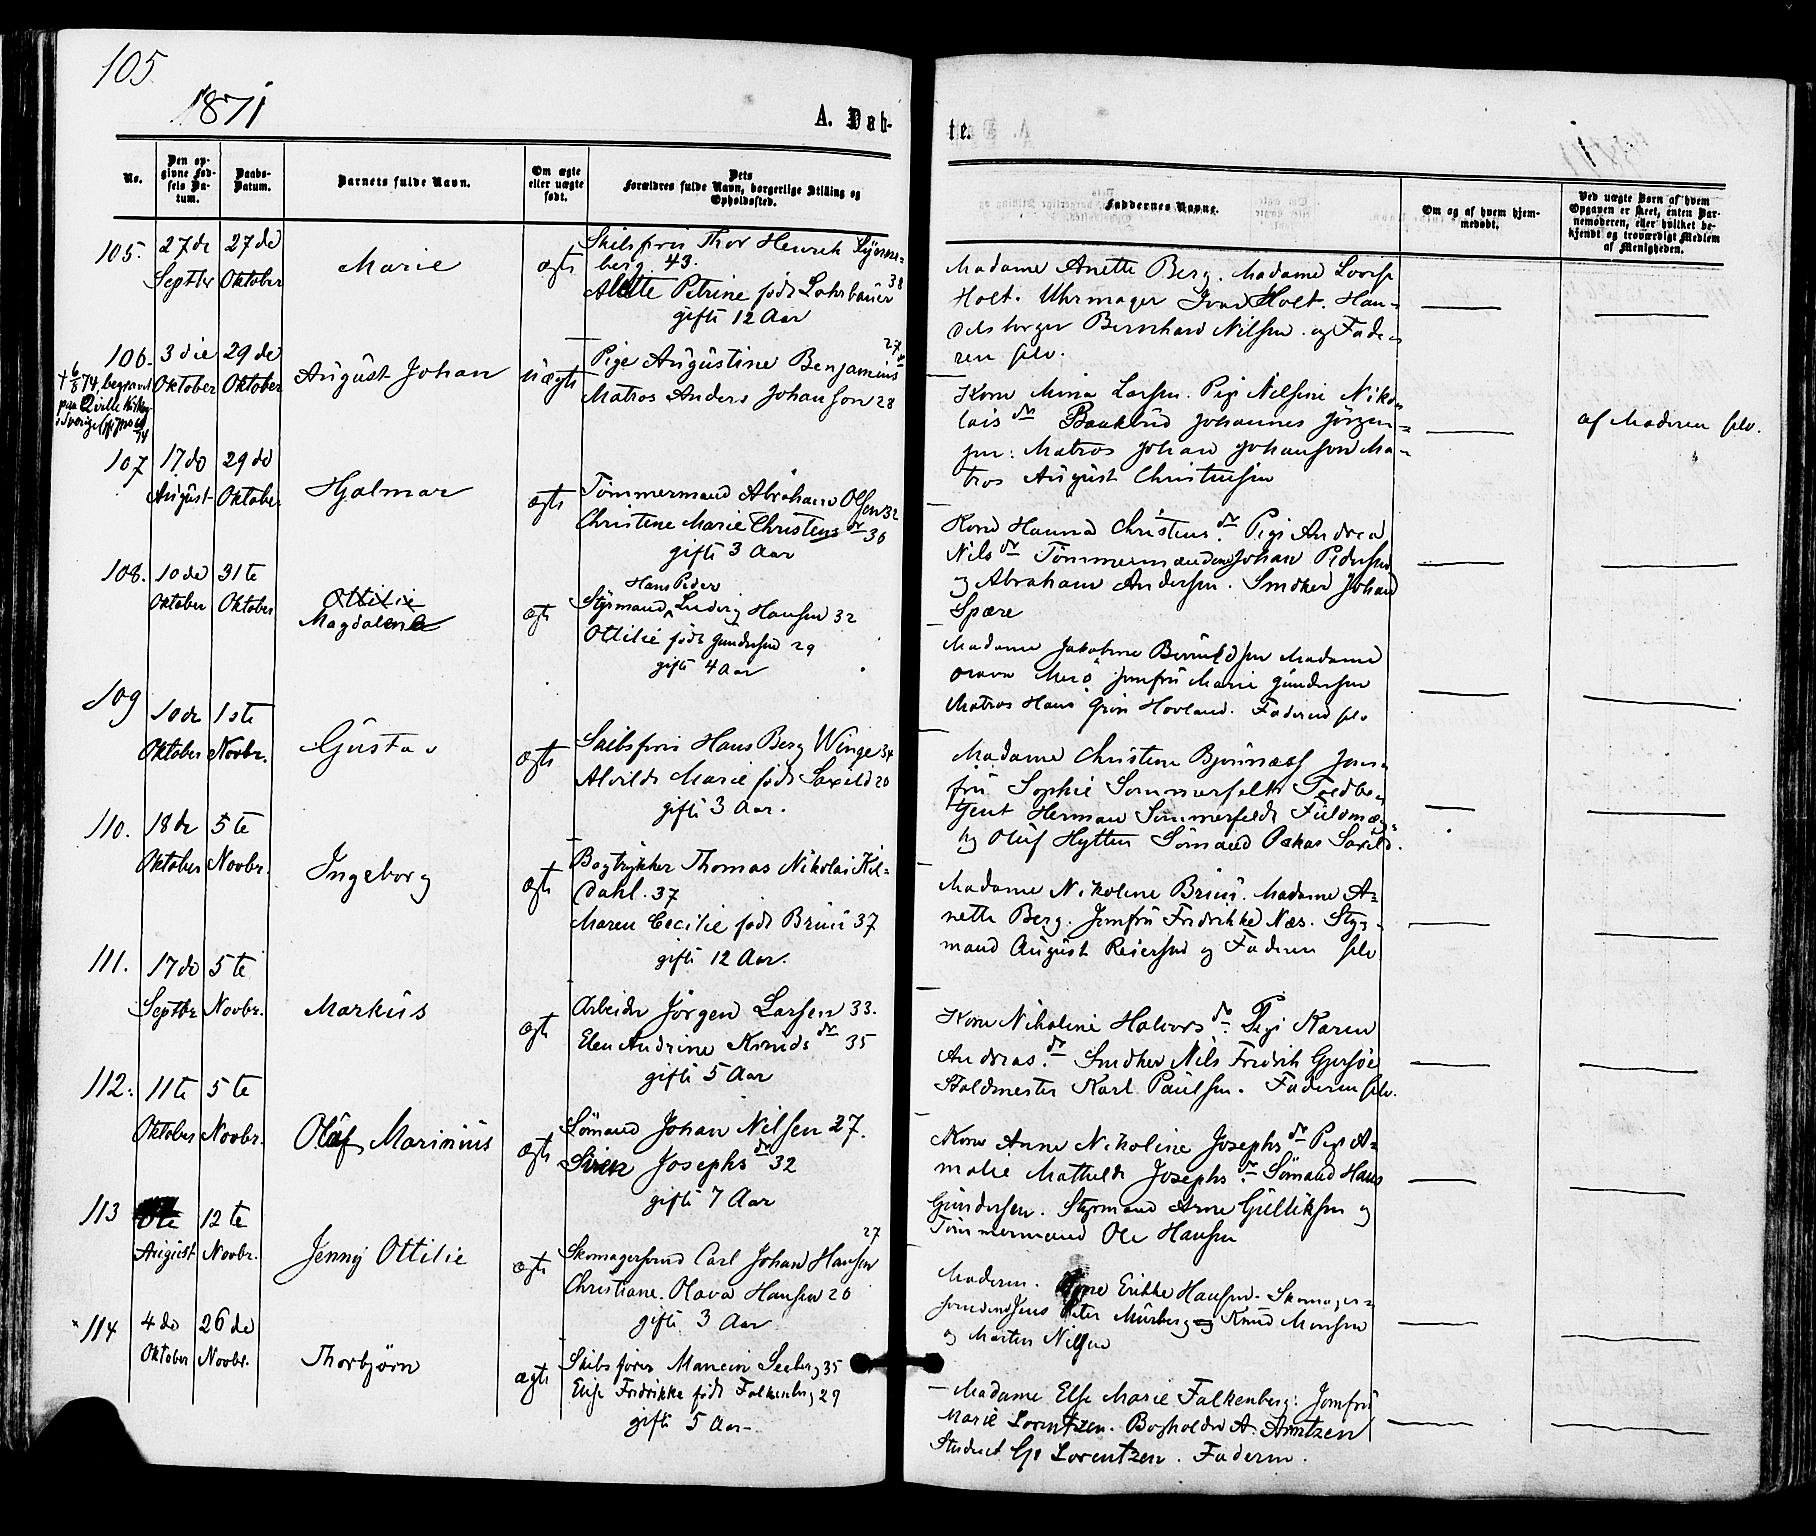 105
1871
A. Døb-
te.
No.
Den op-
givne Fød-
sels Da-
tum.
Daabs-
Datum.
Barnets fulde Navn.
Om ægte
eller uægte
født.
Dets
Forældres fulde Navn, borgerlige Stilling og
Opholdssted.
Faddernes Navne.
Om og af hvem hjem-
medøbt.
Ved uægte Børn af hvem
Opgaven er skeet, enten Bar-
nemoderen, eller hvilket be-
kjendt og troværdigt Medlem
af Menigheden.
105. 27de 27de
Septber Oktober
Marie
ægte
Skibsfører Thor Henrik
berg 43.
38
Petrine født Lohrbauer
gifte 12 Aar
Madame Anette Berg. Madame Lovise
Holt. Uhrmager Holt. Han-
delsborger Bernhard Nilsen. og Fade-
ren selv.
106. 3die 29de
Oktober Oktober
August Johan
uægte
27
Pige Augustine Benjamins dr
Matros Anders Johanson 28
Kone Mina Larsen. Pige Nilsine Niko-
lais dr Johannes Jörgen-
sen: Matros Johan Johanson Ma-
tros August Christensen
af Moderen selv.
107 17de 29de
August Oktober
Hjalmar
ægte
Tømmermand Abraham Olsen 32
Christine Marie Christens dr 30
gifte 3 Aar
Kone Hanna Christens dr. Pige Andrea
Nils dr Tømmermændene Johan Pedersen
og Abraham Andersen. Snedker Johan
Spære
108. 10de 31te
Oktober Oktober
Ottilie
Magdalena
ægte
Hans Peder
Styrmand Ludvig Hansen 32
Ottilie født Gundersen 29
gifte 4 Aar
Madame Jakobine Madame
Jomfru Marie Gundersen
Matros Hans Hovland. Faderen selv
109 10de 1ste
Oktober Novbr.
Gustav
ægte
Skibsfører Hans Berg Winge 34
Alvilde Marie født Saxild 20
gifte 3 Aar.
Madame Christine Bjønnæss Jom-
fru Sophie Sommerfeldt Toldbe-
tjent Herman Sommerfeldt Fuldmæ-
tig Oluf Hytten Sømand Oskar Saxild.
110. 18de 5te
Oktober Novbr.
Ingeborg
ægte
Bogtrykker Thomas Nikolai Kil-
dahl. 37
Maren Cecilie født Bruu 37
gifte 12 Aar.
Madame Nikoline Madame A-
nette Berg. Jomfru Fredrikke Næs. Styr-
mand August Reiersen og Faderen selv
111. 17de 5te
Septbr Novbr.
Markus
ægte
Arbeider Jörgen Larsen 33.
Elen Andrine Knuds dr 35
gifte 5 Aar
Kone Nikoline Halvors dr. Pige Karen
Andreas dr. Snedker Nils Fredrik
Staldmester Karl Paulsen. Faderen selv.
112. 11te 5te
Oktober Novbr.
Olaf Marinius
ægte
Sømand Johan Nilsen 27.
Siren Josephs dr 32
gifte 7 Aar
Kone Anne Nikoline Josephs dr Pige A-
malie Mathilde Josephs dr. Sømand Hans
Gundersen. Styrmand Arne Gulliksen og
Tømmermand Ole Hansen
113 12te
August Novbr.
Jenny Ottilie
ægte
27
Skomagersvend Carl Johan Hansen
Christiane Olava Hansen 20
gifte 3 Aar
Moderen. Erikke Hansen. Skomager-
svendene Jens Peter Murberg og Knud Monsen
og Morten Nilsen
114 4de 26de
Oktober Novbr.
Thorbjørn
ægte
Skibsfører Seeberg 35
Elise Fredrikke født Falkenberg 29
gifte 5 Aar.
Madame Else Marie Falkenberg. Jomfru
Marie Lorentzen. Bogholder A. Arntzen
Student Lorentzen. Faderen.